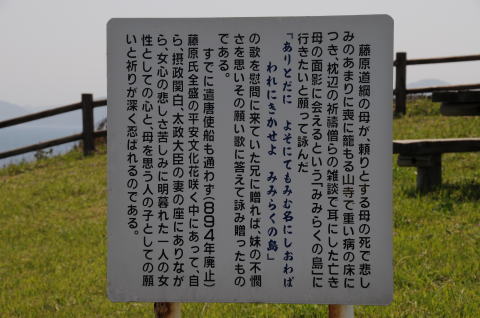 藤原道綱の母が、頼りとする母の死で悲し
みのあまりに喪に籠もる山寺で重い病の床に
つき、枕辺の祈祷僧らの雑談で耳にした亡き
母の面影に会えるという「みみらくの島」に
行きたいと願って詠んだ
「ありとだに よそにてもみむ名にしおわば
われにきかせよ みみらくの島」
の歌を慰問に来ていた兄に贈れば、妹の不憫
さを思いその願い歌に答えて詠み贈ったもの
である。
すでに遣唐使船も通わず(894年廃止)
藤原氏全盛の平安文化花咲く中にあって、自
ら、摂政関白、太政大臣の妻の座にありなが
ら、女心の悲しさ苦しみに明暮れた一人の女
性としての心と、母を思う人の子としての願
いと祈りが深く忍ばれるのである。